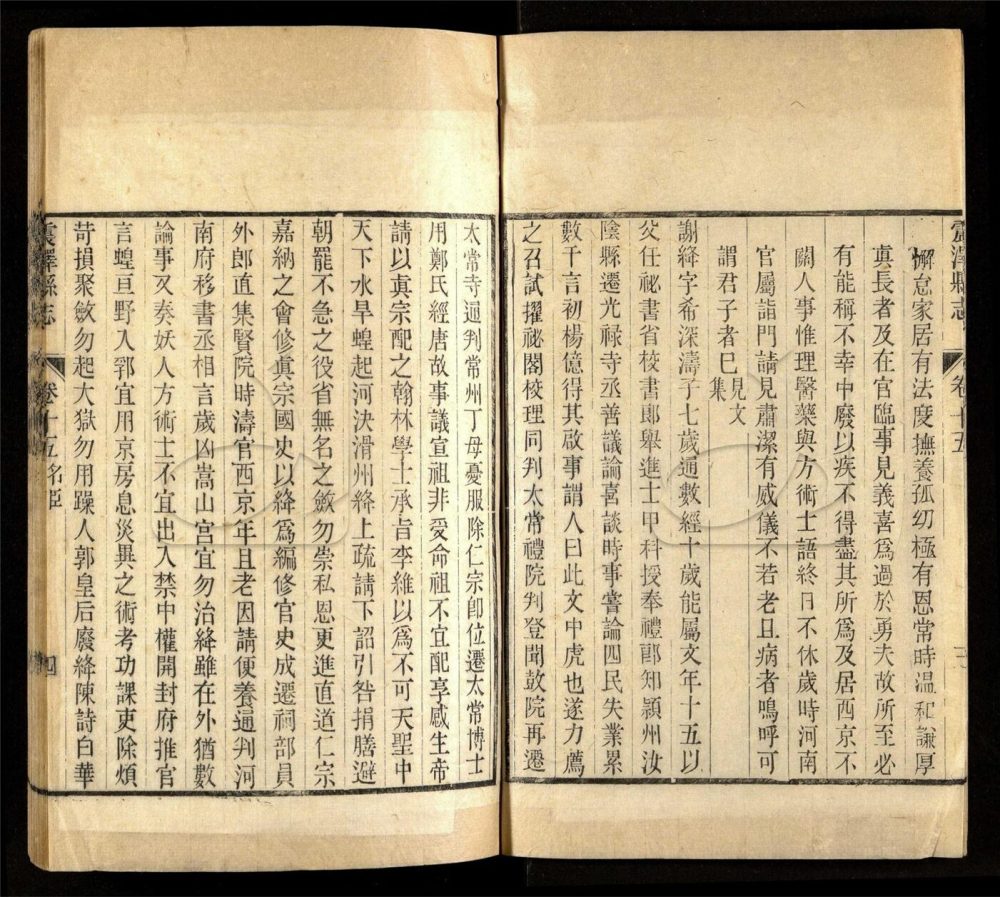 震澤縣志
卷十五
三
懈怠家居有法度撫養孤幼極有恩常時温和謙厚
真長者及在官臨事見義喜爲過於勇夫故所至必
有能稱不幸中廢以疾不得盡其所爲及居西京不
關人事惟理醫藥與方術士語終日不休歲時河南
官屬詣門請見肅潔有威儀不若老且病者嗚呼可
謂君子者巳見文集
謝絳字希深濤子七歲通數經十歲能屬文年十五以
父任祕書省校書郎舉進士甲科授奉禮郎知潁州汝
陰縣遷光禄寺丞善議論喜談時事嘗論四民失業累
數千言初楊億得其啟事謂人曰此文中虎也遂力薦
之召試擢祕閣校理同判太常禮院判登聞鼓院再遷
太常寺通判常州丁母憂服除仁宗卽位遷太常博士
用鄭氏經唐故事議宣祖非受命祖不宜配享感生帝
請以真宗配之翰林學士承旨李維以爲不可天聖中
天下水旱蝗起河決滑州絳上疏請下詔引咎捐膳避
朝罷不急之役省無名之斂勿崇私恩更進直道仁宗
嘉納之會修真宗國史以絳爲編修官史成遷祠部員
外郎直集賢院時濤官西京年且老因請便養通判河
南府移書丞相言歲凶嵩山宫宜勿治絳雖在外猶數
論事又奏妖人方術士不宜出入禁中權開封府推官
言蝗亘野入郛宜用京房息災異之術考功課吏除煩
苛損聚斂勿起大獄勿用躁人郭皇后廢絳陳詩白華
震澤縣志
卷十五名臣
四